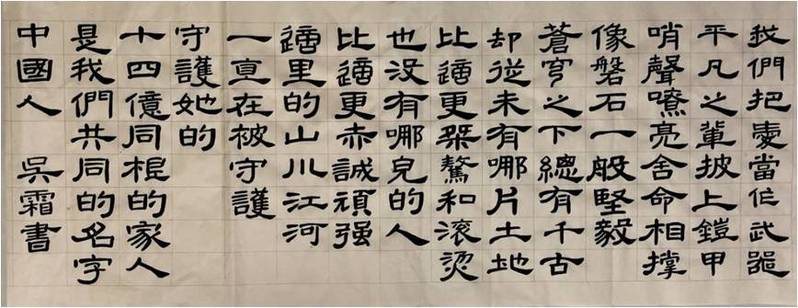 我們把愛當作武器
平凡之輩披上鎧甲
哨聲嘹亮舍命相撐
像磐石一般堅毅
蒼穹之下總有千古
却從未有哪片土地
比這更桀驁和滾燙
也没有哪兒的人
比這更赤誠頑强
這里的山川江河
一直在被守護
守護她的
十四億同根的家人
是我們共同的名字
中國人 吳霜書